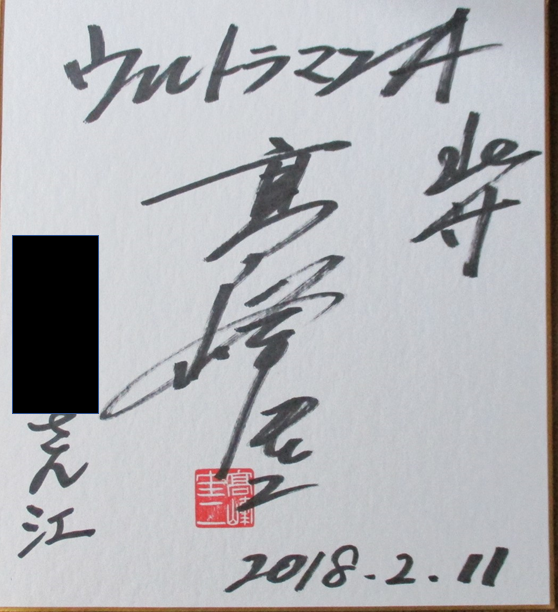 ウルトラマンA
北斗
高峰圭二
さん江
高峰
圭二
2018.2.11